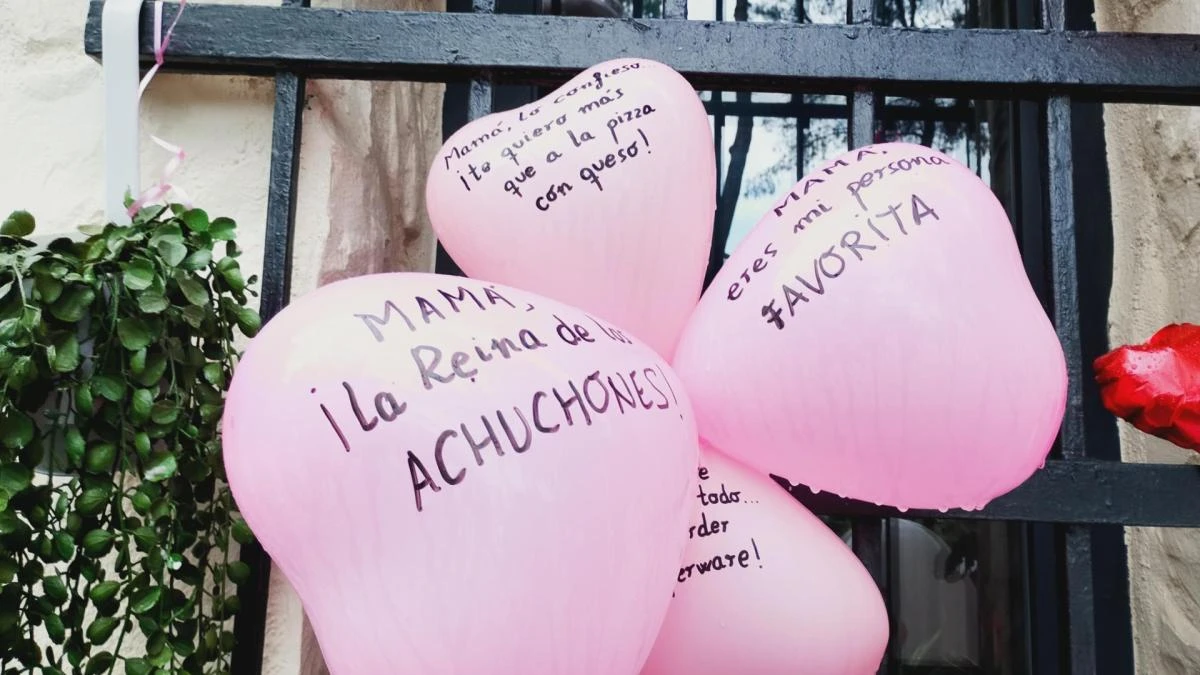 Mamá, lo confieso...
¡te quiero más
que a la pizza
con queso!
MAMÁ,
eres mi persona
FAVORITA
MAMÁ,
¡La Reina de los
ACHUCHONES!
todo...